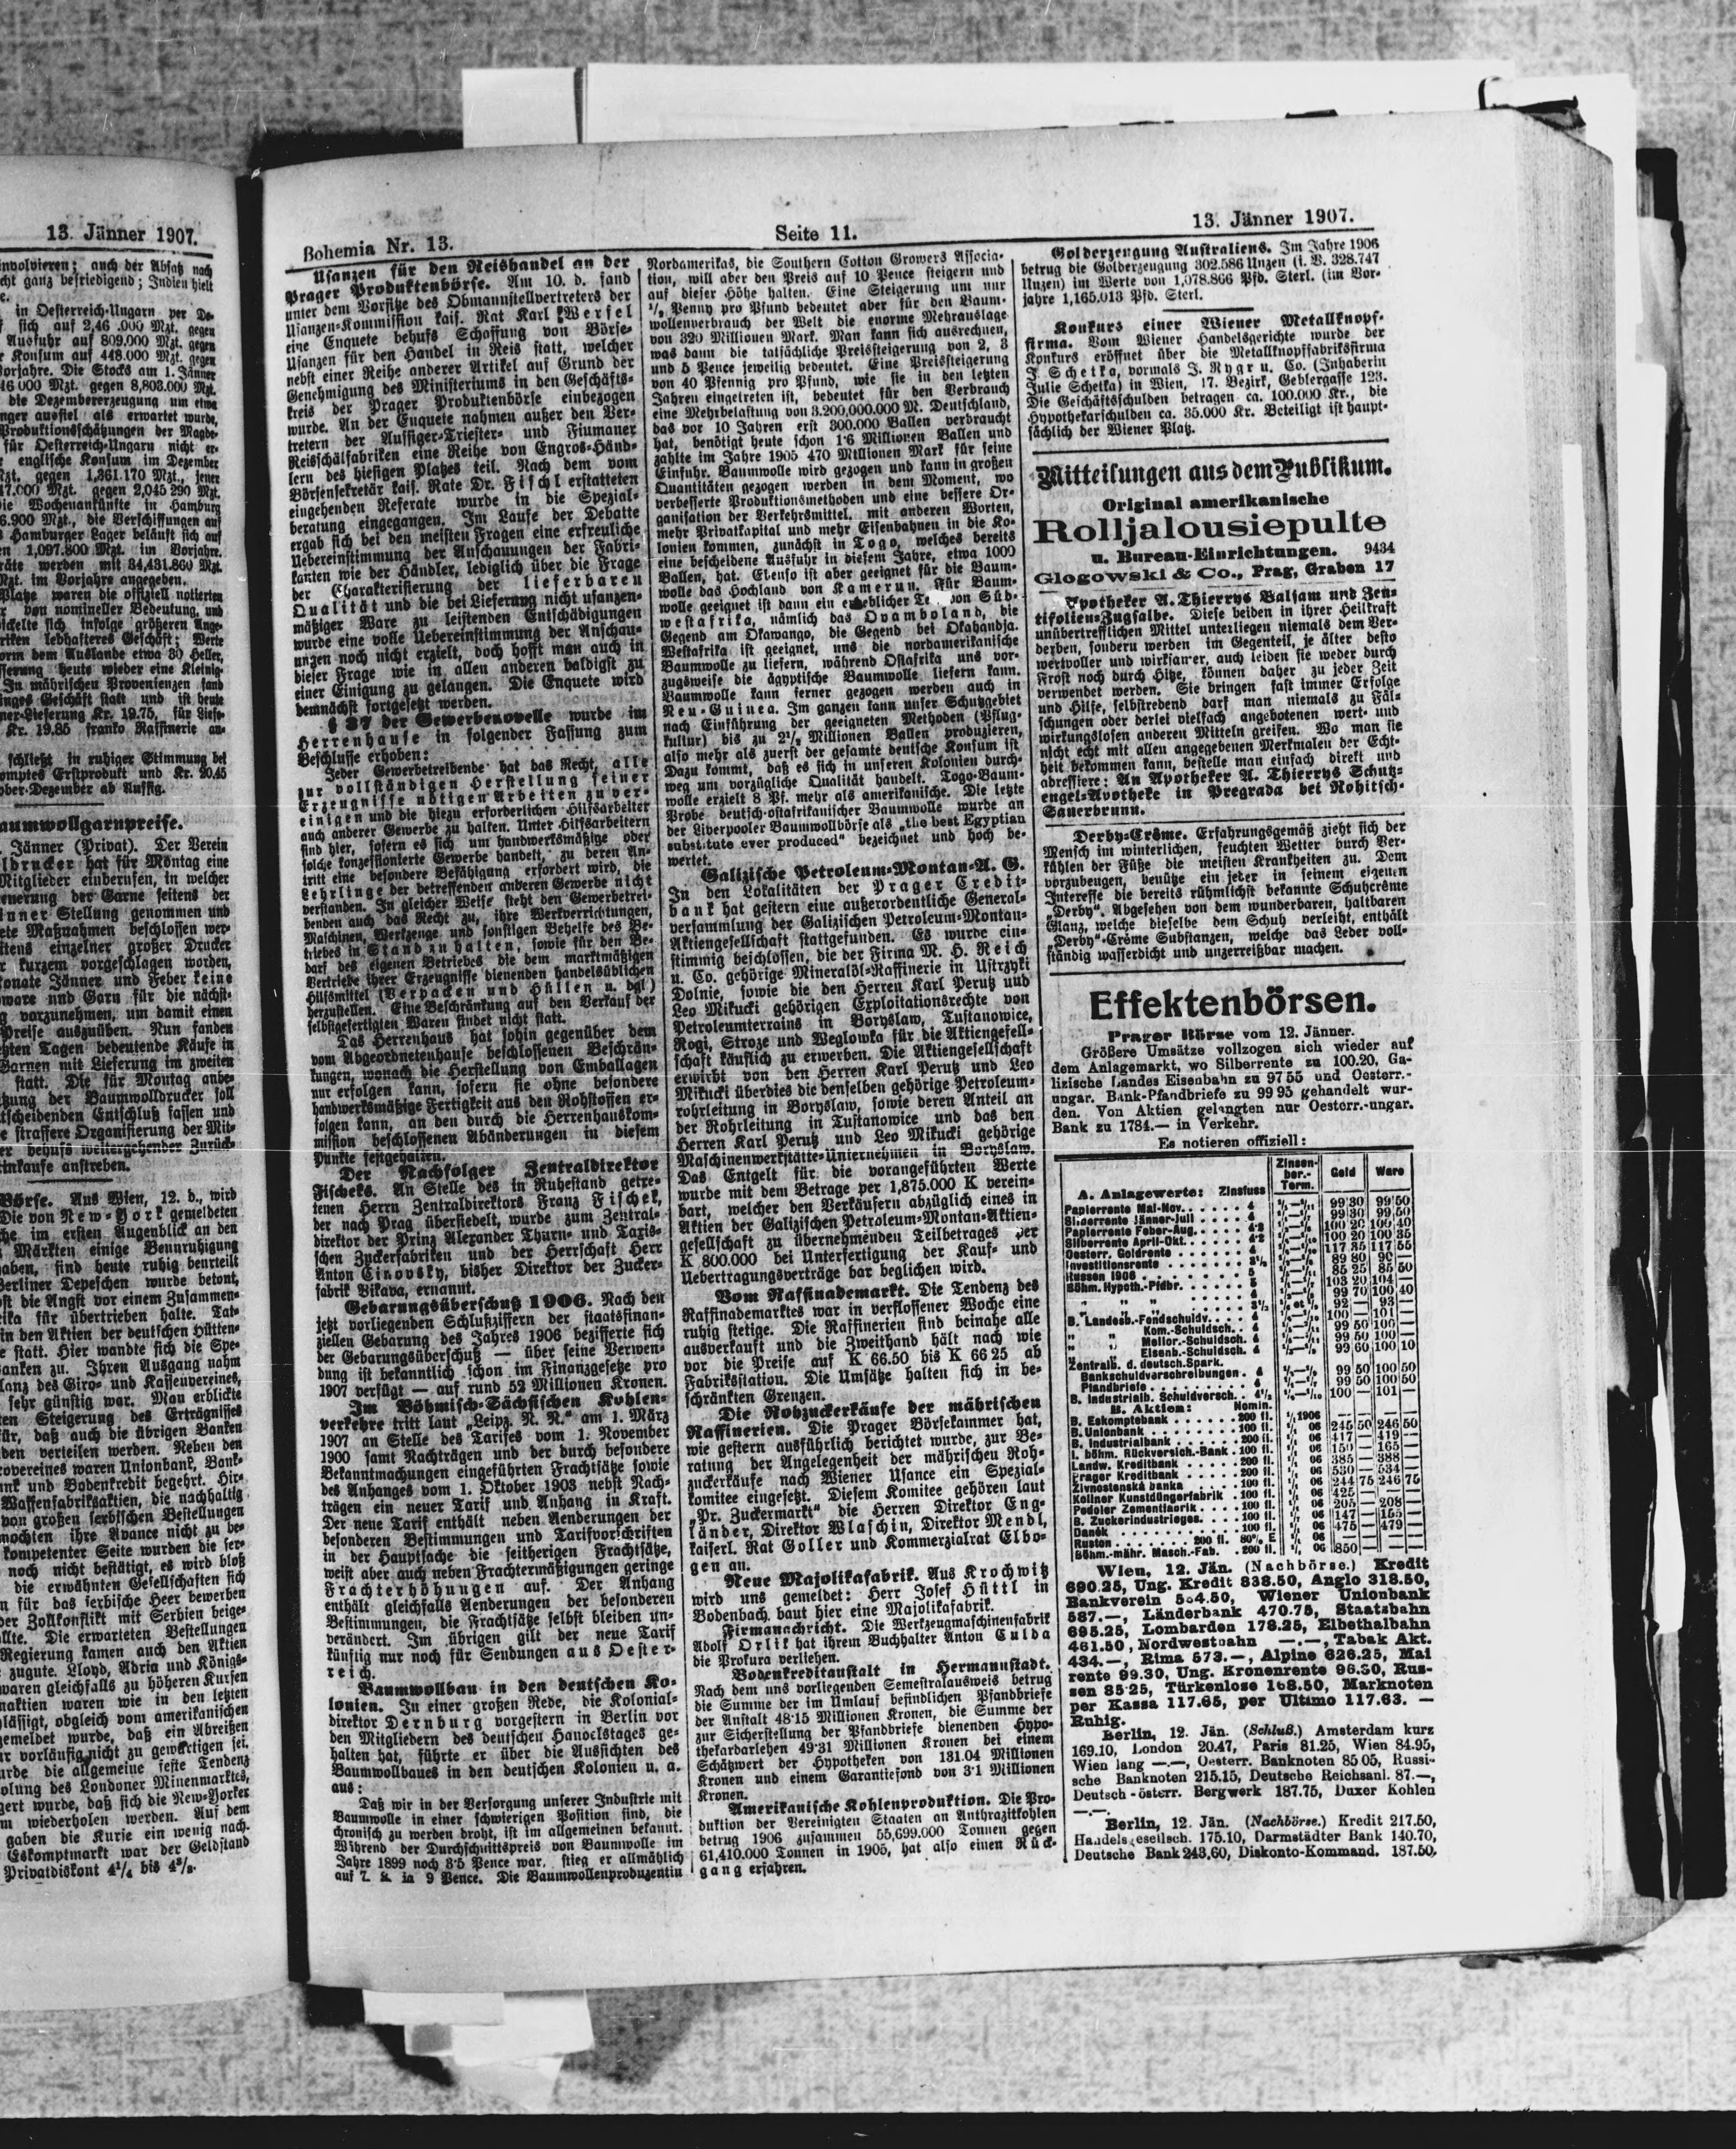 13. Jänner 1907.
involvieren; auch der Absatz nach
cht ganz befriedigend; Indien hielt
in Oesterreich-Ungarn per De-
sich auf 2,46 .000 Mzt. gegen
Ausfuhr auf 809.000 Mzt. gegen
Konsum auf 448.000 Mzt. gegen
Vorjahre. Die Stocks am 1. Jänner
46 000 Mzt. gegen 8,803.000 Mzt.
die Dezembererzeugung um etwa
nger ausfiel als erwartet wurde,
Produktionsschätzungen der Magde-
für Oesterreich-Ungarn nicht er-
englische Konsum im Dezember
Mzt. gegen 1,361.170 Mzt., jener
47.000 Mzt. gegen 2,045 290 Mzt.
die Wochenankünfte in Hamburg
6.900 Mzt., die Verschiffungen auf
Hamburger Lager beläuft sich auf
en 1,097.800 Mzt. im Vorjahr.
räte werden mit 84,431.860 Mzt.
Mzt. im Vorjahre angegeben.
Platze waren die offiziell notierten
von nomineller Bedeutung, und
ickelte sich infolge größeren Ange-
riken lebhafteres Geschäft; Werte
orm dem Auslande etwa 30 Heller,
sserung heute wieder eine Kleinig-
In mährischen Provenienzen fand
inges Geschäft statt und ist heute
ner-Lieferung Kr. 19.75, für Liefe-
Kr. 19.85 franko Raffinerie an-
schließt in ruhiger Stimmung bei
omptes Erstprodukt und Kr. 20.45
ober-Dezember ab Aussig.
aumwollgarnpreise.
Jänner (Privat). Der Verein
ldrucker hat für Montag eine
Mitglieder einberufen, in welcher
euerung der Garne seitens der
inner Stellung genommen und
ete Maßnahmen beschlossen wer-
itens einzelner großer Drucker
kurzem vorgeschlagen worden,
onate Jänner und Feber keine
ware und Garn für die nächst-
vorzunehmen, um damit einen
Preise auszuüben. Nun fanden
hten Tagen bedeutende Käufe in
Garnen mit Lieferung im zweiten
statt. Die für Montag anbe-
tzung der Baumwolldrucker soll
tscheidenden Entschluß fassen und
e straffere Organisierung der Mit-
er behufs weitergehender Zurück-
inkaufe anstreben.
Börse. Aus Wien, 12. d., wird
Die von New-York gemeldeten
he im ersten Augenblick an den
Märkten einige Beunruhigung
aben, sind heute ruhig beurteilt
Berliner Depeschen wurde betont,
st die Angst vor einem Zusammen-
ika für übertrieben halte. Tat-
in den Aktien der deutschen Hütten-
e statt. Hier wandte sich die Spe-
anken zu. Ihren Ausgang nahm
lanz des Giro- und Kassenvereines,
sehr günstig war. Man erblickte
ten Steigerung des Erträgnisses
für, daß auch die übrigen Banken
den verteilen werden. Neben den
overeines waren Unionbank, Bank-
ank und Bodenkredit begehrt. Hir-
Waffenfabriksaktien, die nachhaltig
von großen serbischen Bestellungen
mochten ihre Avance nicht zu be-
kompetenter Seite wurden die ser-
noch nicht bestätigt, es wird bloß
die erwähnten Gesellschaften sich
n für das serbische Heer bewerben
der Zollkonflikt mit Serbien beige-
llte. Die erwarteten Bestellungen
Regierung kamen auch den Aktien
zugute. Lloyd, Adria und Königs-
waren gleichfalls zu höheren Kursen
naktien waren wie in den letzten
lässigt, obgleich vom amerikanischen
gemeldet wurde, daß ein Abreißen
ur vorläufig nicht zu gewärtigen sei.
urde die allgemeine feste Tendenz
olung des Londoner Minenmarktes,
gert wurde, daß sich die New-Yorker
m wiederholen werden. Auf dem
gaben die Kurse ein wenig nach.
Eskomptmarkt war der Geldstand
Privatdiskont 4¹/₄ bis 4³/₈.
Bohemia Nr. 13.
Seite 11.
13. Jänner 1907.
Usanzen für den Reishandel an der
Prager Produktenbörse. Am 10. d. fand
unter dem Vorsitze des Obmannstellvertreters der
Usanzen-Kommission kais. Rat Karl Werfel
eine Enquete behufs Schaffung von Börse-
Usanzen für den Handel in Reis statt, welcher
nebst einer Reihe anderer Artikel auf Grund der
Genehmigung des Ministeriums in den Geschäfts-
kreis der Prager Produktenbörse einbezogen
wurde. An der Enquete nahmen außer den Ver-
tretern der Aussiger-Triester- und Fiumaner
Reisschälfabriken eine Reihe von Engros-Händ-
lern des hiesigen Platzes teil. Nach dem vom
Börsensekretär kais. Rate Dr. Fischl erstatteten
eingehenden Referate wurde in die Spezial-
beratung eingegangen. Im Laufe der Debatte
ergab sich bei den meisten Fragen eine erfreuliche
Uebereinstimmung der Anschauungen der Fabri-
kanten wie der Händler, lediglich über die Frage
der Charakterisierung der lieferbaren
Qualität und die bei Lieferung nicht usanzen-
mäßiger Ware zu leistenden Entschädigungen
wurde eine volle Uebereinstimmung der Anschau-
ungen noch nicht erzielt, doch hofft man auch in
dieser Frage wie in allen anderen baldigst zu
einer Einigung zu gelangen. Die Enquete wird
demnächst fortgesetzt werden.
§ 37 der Gewerbenovelle wurde im
Herrenhause in folgender Fassung zum
Beschlusse erhoben:
Jeder Gewerbetreibende hat das Recht, alle
zur vollständigen Herstellung seiner
Erzeugnisse nötigen Arbeiten zu ver-
einigen und die hiezu erforderlichen Hilfsarbeiter
auch anderer Gewerbe zu halten. Unter Hilfsarbeitern
sind hier, sofern es sich um handwerksmäßige oder
solche konzessionierte Gewerbe handelt, zu deren An-
tritt eine besondere Befähigung erfordert wird, die
Lehrlinge der betreffenden anderen Gewerbe nicht
verstanden. In gleicher Weise steht den Gewerbetrei-
benden auch das Recht zu, ihre Werkvorrichtungen,
Maschinen, Werkzeuge und sonstigen Behelfe des Be-
triebes in Stand zu halten, sowie für den Be-
darf des eigenen Betriebes die dem marktmäßigen
Vertriebe ihrer Erzeugnisse dienenden handelsüblichen
Hilfsmittel (Verpacken und Hüllen u. dgl.)
herzustellen. Eine Beschränkung auf den Verkauf der
selbstgefertigten Waren findet nicht statt.
Das Herrenhaus hat sohin gegenüber dem
vom Abgeordnetenhause beschlossenen Beschrän-
kungen, wonach die Herstellung von Emballagen
nur erfolgen kann, sofern sie ohne besondere
handwerksmäßige Fertigkeit aus den Rohstoffen er-
folgen kann, an den durch die Herrenhauskom-
mission beschlossenen Abänderungen in diesem
Punkte festgehalten.
Der Nachfolger Zentraldirektor
Fischeks. An Stelle des in Ruhestand getre-
tenen Herrn Zentraldirektors Franz Fischek,
der nach Prag übersiedelt, wurde zum Zentral-
direktor der Prinz Alexander Thurn- und Taxis-
schen Zuckerfabriken und der Herrschaft Herr
Anton Cinovsky, bisher Direktor der Zucker-
fabrik Vikava, ernannt.
Gebarungsüberschuß 1906. Nach den
jetzt vorliegenden Schlußziffern der staatsfinan-
ziellen Gebarung des Jahres 1906 bezifferte sich
der Gebarungsüberschuß — über seine Verwen-
dung ist bekanntlich schon im Finanzgesetze pro
1907 verfügt — auf rund 52 Millionen Kronen.
Im Böhmisch-Sächsischen Kohlen-
verkehre tritt laut „Leipz. N. N.“ am 1. März
1907 an Stelle des Tarifes vom 1. November
1900 samt Nachträgen und der durch besondere
Bekanntmachungen eingeführten Frachtsätze sowie
des Anhanges vom 1. Oktober 1903 nebst Nach-
trägen ein neuer Tarif und Anhang in Kraft.
Der neue Tarif enthält neben Aenderungen der
besonderen Bestimmungen und Tarifvorschriften
in der Hauptsache die seitherigen Frachtsätze,
weist aber auch neben Frachtermäßigungen geringe
Frachterhöhungen auf. Der Anhang
enthält gleichfalls Aenderungen der besonderen
Bestimmungen, die Frachtsätze selbst bleiben un-
verändert. Im übrigen gilt der neue Tarif
künftig nur noch für Sendungen aus Oester-
reich.
Baumwollbau in den deutschen Ko-
lonien. In einer großen Rede, die Kolonial-
direktor Dernburg vorgestern in Berlin vor
den Mitgliedern des deutschen Handelstages ge-
halten hat, führte er über die Aussichten des
Baumwollbaues in den deutschen Kolonien u. a.
aus:
Daß wir in der Versorgung unserer Industrie mit
Baumwolle in einer schwierigen Position sind, die
chronisch zu werden droht, ist im allgemeinen bekannt.
Während der Durchschnittspreis von Baumwolle im
Jahre 1899 noch 3·5 Pence war, stieg er allmählich
auf 7, 8, ja 9 Pence. Die Baumwollenproduzentin
Nordamerikas, die Southern Cotton Growers Associa-
tion, will aber den Preis auf 10 Pence steigern und
auf dieser Höhe halten. Eine Steigerung um nur
Penny pro Pfund bedeutet aber für den Baum-
wollenverbrauch der Welt die enorme Mehrauslage
von 320 Millionen Mark. Man kann sich ausrechnen,
was dann die tatsächliche Preissteigerung von 2, 3
und 5 Pence jeweilig bedeutet. Eine Preissteigerung
von 40 Pfennig pro Pfund, wie sie in den letzten
Jahren eingetreten ist, bedeutet für den Verbrauch
eine Mehrbelastung von 3.200,000.000 M. Deutschland,
das vor 10 Jahren erst 300.000 Ballen verbraucht
hat, benötigt heute schon 1·6 Millionen Ballen und
zahlte im Jahre 1905 470 Millionen Mark für seine
Einfuhr. Baumwolle wird gezogen und kann in großen
Quantitäten gezogen werden in dem Moment, wo
verbesserte Produktionsmethoden und eine bessere Or-
ganisation der Verkehrsmittel, mit anderen Worten,
mehr Privatkapital und mehr Eisenbahnen in die Ko-
lonien kommen, zunächst in Togo, welches bereits
eine bescheidene Ausfuhr in diesem Jahre, etwa 1000
Ballen, hat. Ebenso ist aber geeignet für die Baum-
wolle das Hochland von Kamerun. Für Baum-
wolle geeignet ist dann ein von Süd-
westafrika, nämlich das Ovamboland, die
Gegend am Okawango, die Gegend bei Okahandja.
Westafrika ist geeignet, uns die nordamerikanische
Baumwolle zu liefern, während Ostafrika uns vor-
zugsweise die ägyptische Baumwolle liefern kann.
Baumwolle kann ferner gezogen werden auch in
Neu-Guinea. Im ganzen kann unser Schutzgebiet
nach Einführung der geeigneten Methoden (Pflug-
kultur) bis zu 2¹/₂ Millionen Ballen produzieren,
also mehr als zuerst der gesamte deutsche Konsum ist.
Dazu kommt, daß es sich in unseren Kolonien durch-
weg um vorzügliche Qualität handelt. Togo-Baum-
wolle erzielt 8 Pf. mehr als amerikanische. Die letzte
Probe deutsch-ostafrikanischer Baumwolle wurde an
der Liverpooler Baumwollbörse als „the best Egyptian
substitute ever produced“ bezeichnet und hoch be-
wertet.
Galizische Petroleum-Montan-A. G.
In den Lokalitäten der Prager Credit-
bank hat gestern eine außerordentliche General-
versammlung der Galizischen Petroleum-Montan-
Aktiengesellschaft stattgefunden. Es wurde ein-
stimmig beschlossen, die der Firma M. H. Reich
u. Co. gehörige Mineralöl-Raffinerie in Ustrzyki
Dolnie, sowie die den Herren Karl Perutz und
Leo Mikucki gehörigen Exploitationsrechte von
Petroleumterrains in Boryslaw, Tustanowice,
Rogi, Stroze und Weglowka für die Aktiengesell-
schaft käuflich zu erwerben. Die Aktiengesellschaft
erwirbt von den Herren Karl Perutz und Leo
Mikucki überdies die denselben gehörige Petroleum-
rohrleitung in Boryslaw, sowie deren Anteil an
der Rohrleitung in Tustanowice und das den
Herren Karl Perutz und Leo Mikucki gehörige
Maschinenwerkstätte-Unternehmen in Boryslaw.
Das Entgelt für die vorangeführten Werte
wurde mit dem Betrage per 1,875.000 K verein-
bart, welcher den Verkäufern abzüglich eines in
Aktien der Galizischen Petroleum-Montan-Aktien-
gesellschaft zu übernehmenden Teilbetrages per
K 800.000 bei Unterfertigung der Kauf- und
Uebertragungsverträge bar beglichen wird.
Vom Raffinademarkt. Die Tendenz des
Raffinademarktes war in verflossener Woche eine
ruhig stetige. Die Raffinerien sind beinahe alle
ausverkauft und die Zweithand hält nach wie
vor die Preise auf K 66.50 bis K 66 25 ab
Fabriksstation. Die Umsätze halten sich in be-
schränkten Grenzen.
Die Rohzuckerkäufe der mährischen
Raffinerien. Die Prager Börsekammer hat,
wie gestern ausführlich berichtet wurde, zur Be-
ratung der Angelegenheit der mährischen Roh-
zuckerkäufe nach Wiener Usance ein Spezial-
komitee eingesetzt. Diesem Komitee gehören laut
„Pr. Zuckermarkt“ die Herren Direktor Eng-
länder, Direktor Wlaschin, Direktor Mendl,
kaiserl. Rat Goller und Kommerzialrat Elbo-
gen an.
Neue Majolikafabrik. Aus Krochwitz
wird uns gemeldet: Herr Josef Hüttl in
Bodenbach baut hier eine Majolikafabrik.
Firmanachricht. Die Werkzeugmaschinenfabrik
Adolf Orlik hat ihrem Buchhalter Anton Culda
die Prokura verliehen.
Bodenkreditanstalt in Hermannstadt.
Nach dem uns vorliegenden Semestralausweis betrug
die Summe der im Umlauf befindlichen Pfandbriefe
der Anstalt 48·15 Millionen Kronen, die Summe der
zur Sicherstellung der Pfandbriefe dienenden Hypo-
thekardarlehen 49·31 Millionen Kronen bei einem
Schätzwert der Hypotheken von 131.04 Millionen
Kronen und einem Garantiefond von 3·1 Millionen
Kronen.
Amerikanische Kohlenproduktion. Die Pro-
duktion der Vereinigten Staaten an Anthrazitkohlen
betrug 1906 zusammen 55,699.000 Tonnen gegen
61,410.000 Tonnen in 1905, hat also einen Rück-
gang erfahren.
Golderzeugung Australiens. Im Jahre 1906
betrug die Golderzeugung 302.586 Unzen (i. V. 328.747
Unzen) im Werte von 1,078.866 Pfd. Sterl. (im Vor-
jahre 1,165.013 Pfd. Sterl.
Konkurs einer Wiener Metallknopf-
firma. Vom Wiener Handelsgerichte wurde der
Konkurs eröffnet über die Metallknopffabriksfirma
J. Schetka, vormals J. Rygr u. Co. (Inhaberin
Julie Schetka) in Wien, 17. Bezirk, Geblergasse 123.
Die Geschäftsschulden betragen ca. 100.000 Kr., die
Hypothekarschulden ca. 35.000 Kr. Beteiligt ist haupt-
sächlich der Wiener Platz.
Mitteilungen aus dem Publikum.
Original amerikanische
Rolljalousiepulte
u. Bureau-Einrichtungen. 9434
Glogowski & Co., Prag, Graben 17
Apotheker A. Thierrys Balsam und Zen-
tifolien-Zugsalbe. Diese beiden in ihrer Heilkraft
unübertrefflichen Mittel unterliegen niemals dem Ver-
derben, sondern werden im Gegenteil, je älter desto
wertvoller und wirksamer, auch leiden sie weder durch
Frost noch durch Hitze, können daher zu jeder Zeit
verwendet werden. Sie bringen fast immer Erfolge
und Hilfe, selbstredend darf man niemals zu Fäl-
schungen oder derlei vielfach angebotenen wert- und
wirkungslosen anderen Mitteln greifen. Wo man sie
nicht echt mit allen angegebenen Merkmalen der Echt-
heit bekommen kann, bestelle man einfach direkt und
adressiere: An Apotheker A. Thierrys Schutz-
engel-Apotheke in Pregrada bei Rohitsch-
Sauerbrunn.
Derby-Crême. Erfahrungsgemäß zieht sich der
Mensch im winterlichen, feuchten Wetter durch Ver-
kühlen der Füße die meisten Krankheiten zu. Dem
vorzubeugen, benütze ein jeder in seinem eigenen
Interesse die bereits rühmlichst bekannte Schuhcrême
„Derby“. Abgesehen von dem wunderbaren, haltbaren
Glanz, welche dieselbe dem Schuh verleiht, enthält
„Derby“-Crême Substanzen, welche das Leder voll-
ständig wasserdicht und unzerreißbar machen.
Effektenbörsen.
Prager Börse vom 12. Jänner.
Größere Umsätze vollzogen sich wieder auf
dem Anlagemarkt, wo Silberrente zu 100.20, Ga-
lizische Landes Eisenbahn zu 97 55 und Oesterr.-
ungar. Bank-Pfandbriefe zu 99 95 gehandelt wur-
den. Von Aktien gelangten nur Oesterr.-ungar.
Bank zu 1784.— in Verkehr.
Es notieren offiziell:
Zinsen-
ber.-
Term. Geld Ware
A. Anlagewerte: Zinsfuss
Papierrente Mai-Nov. 4 99 30 99 50
Silberrente Jänner-Juli 4 99 30 99 50
Papierrente Feber-Aug. 4·2 100 20 100 40
Silberrente April-Okt. 4·2 100 20 100 35
Oesterr. Goldrente 4 117 35 117 55
Investitionsrente 3¹/₂ 89 80 90 —
Russen 1906 5 85 25 85 50
Böhm. Hypoth.-Pfdbr. 5 103 20 104 —
„ „ „ 4 99 70 100 40
3¹/₂ 92 — 93 —
B. Landesb.-Fondschuldv. 4 100 — 101 —
„ „ Kom.-Schuldsch. 4 99 50 100 —
„ „ Melior.-Schuldsch. 4 99 50 100 —
„ „ Eisenb.-Schuldsch. 4 99 60 100 10
Zentralb. d. deutsch. Spark.
Bankschuldverschreibungen 4 99 50 100 50
Pfandbriefe 4 99 50 100 50
B. Industrialb. Schuldversch. 4¹/₂ 100 — 101 —
B. Aktien: Nomin.
B. Eskomptebank 200 fl. 1906 — — — —
B. Unionbank 100 fl. 06 245 50 246 50
B. Industrialbank 200 fl. 06 417 — 419 —
I. böhm. Rückversich.-Bank 100 fl. 06 150 — 165 —
Landw. Kreditbank 200 fl. 06 385 — 388 —
Prager Kreditbank 200 fl. 06 530 — 534 —
Živnostenská banka 100 fl. 06 244 75 246 75
Koliner Kunstdüngerfabrik 100 fl. 06 425 — — —
Podoler Zementfabrik 100 fl. 06 205 — 208 —
B. Zuckerindustrieges. 100 fl. 06 147 — 155 —
Daněk 100 fl. 06 475 — 479 —
Ruston 200 fl. 80% E 06 — — — —
Böhm.-mähr. Masch.-Fab. 200 fl. 06 850 — — —
Wien, 12. Jän. (Nachbörse.) Kredit
690.25, Ung. Kredit 838.50, Anglo 318.50,
Bankverein 554.50, Wiener Unionbank
587.—, Länderbank 470.75, Staatsbahn
695.25, Lombarden 178.25, Elbethalbahn
461.50, Nordwestbahn —.—, Tabak Akt.
434.—, Rima 573.—, Alpine 626.25, Mai
rente 99.30, Ung. Kronenrente 96.30, Rus-
sen 85·25, Türkenlose 168.50, Marknoten
per Kassa 117.65, per Ultimo 117.63. —
Ruhig.
Berlin, 12. Jän. (Schluß.) Amsterdam kurz
169.10, London 20.47, Paris 81.25, Wien 84.95,
Wien lang —.—, Oesterr. Banknoten 85 05, Russi-
sche Banknoten 215.15, Deutsche Reichsanl. 87.—,
Deutsch-österr. Bergwerk 187.75, Duxer Kohlen
—.—.
Berlin, 12. Jän. (Nachbörse.) Kredit 217.50,
Handelsgesellsch. 175.10, Darmstädter Bank 140.70,
Deutsche Bank 243,60, Diskonto-Kommand. 187.50,